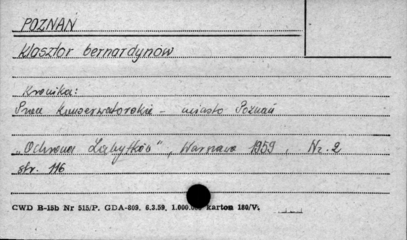 POZNAŃ
Klasztor bernardynów
Kronika:
Prace Konserwatorskie – miasto Poznań
„Ochrona Zabytków", Warszawa 1959, Nr. 2
str. 116
CWD B-15b Nr 515/P. GDA-809. 6.3.59. 1.000.000 karton 180/V.